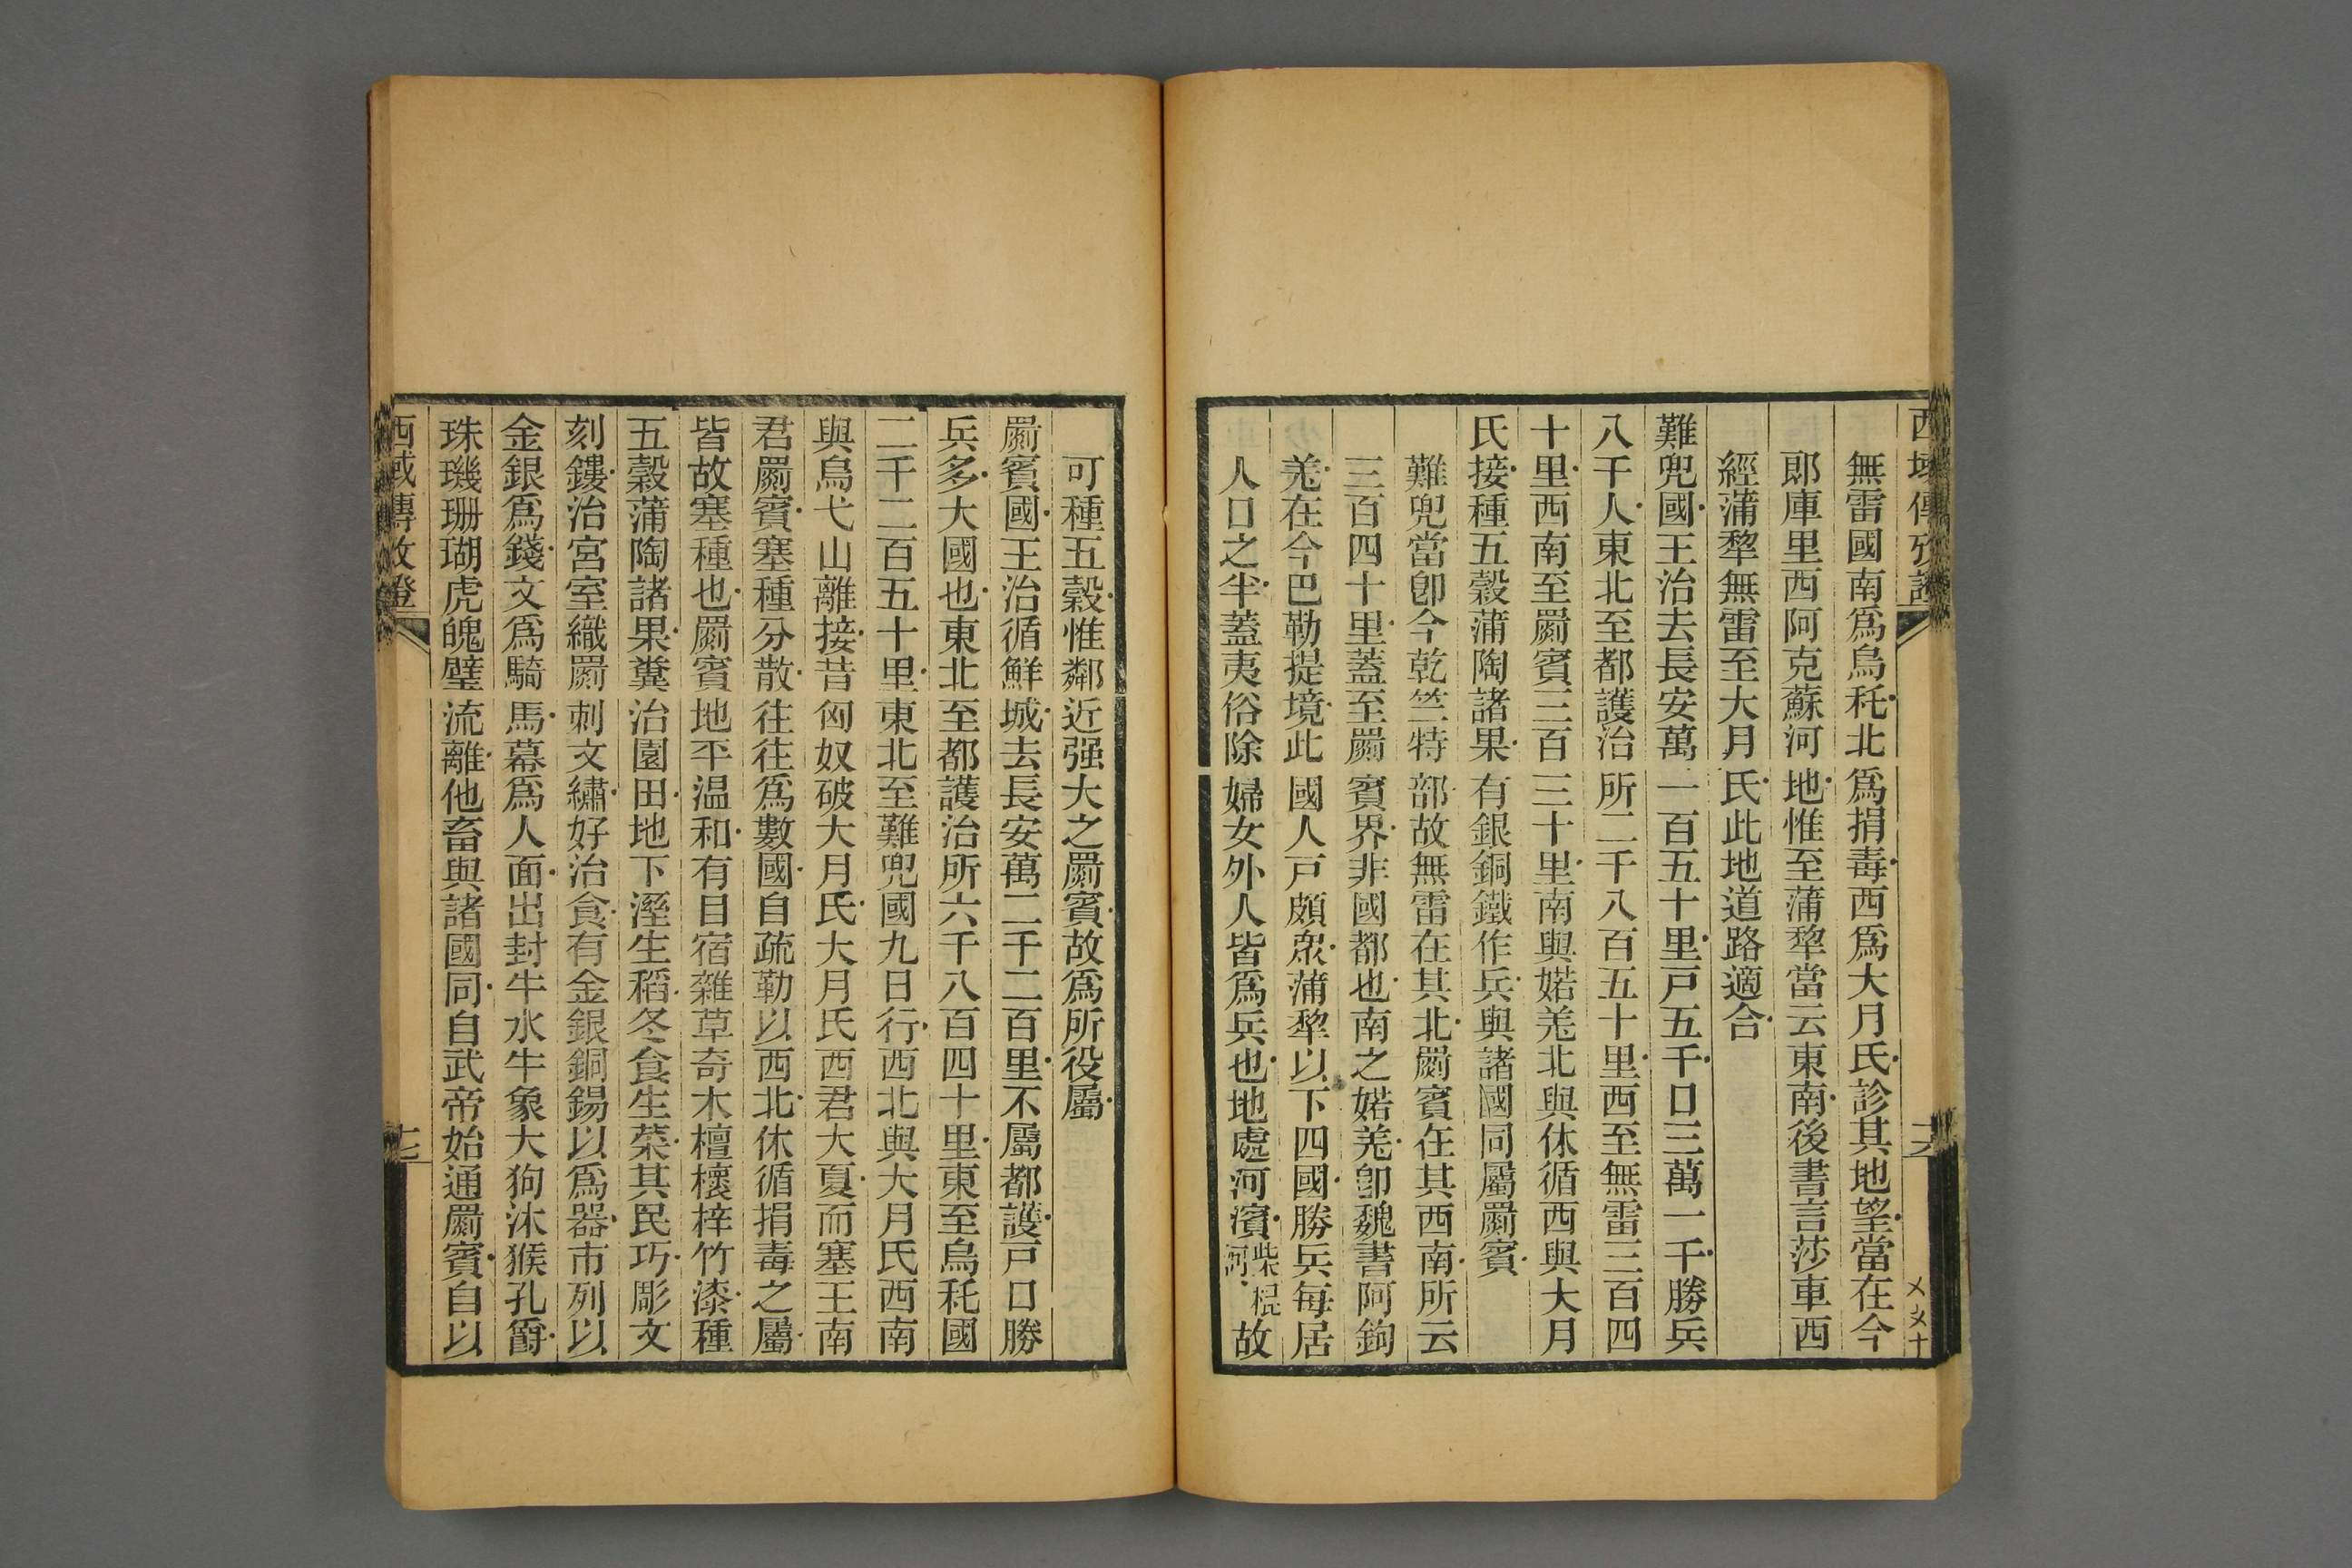 無雷國南爲烏秅北爲捐毒西爲大月氏診其地望當在今
郎庫里西阿克蘇河地惟至蒲犂當云東南後書言莎車西
經蒲犂無雷至大月氏此地道路適合
難兜國王治去長安萬一百五十里戸五千口三萬一千勝兵
八千人東北至都護治所二千八百五十里西至無雷三百四
十里西南至罽賓三百三十里南與婼羌北與休循西與大月
氏接種五穀蒲陶諸果有銀銅鐵作兵與諸國同屬罽賓
難兜當卽今乾竺特部故無雷在其北罽賓在其西南所云
三百四十里蓋至罽賓界非國都也南之婼羌卽魏書阿鉤
羌在今巴勒提境此國人戸頗衆蒲犂以下四國勝兵每居
人口之半蓋夷俗除婦女外人皆爲兵也地處河濱柴棍河故
可種五穀惟鄰近强大之罽賓故爲所役屬
罽賓國王治循鮮城去長安萬二千二百里不屬都護戸口勝
兵多大國也東北至都護治所六千八百四十里東至烏秅國
二千二百五十里東北至難兜國九日行西北與大月氏西南
與烏弋山離接昔匈奴破大月氏大月氏西君大夏而塞王南
君罽賓塞種分散往往爲數國自疏勒以西北休循捐毒之屬
皆故塞種也罽賓地平温和有目宿雜草奇木檀櫰梓竹漆種
五穀蒲陶諸果糞治園田地下溼生稻冬食生菜其民巧彫文
刻鏤治宮室織罽刺文繡好治食有金銀銅錫以爲器市列以
金銀爲錢文爲騎馬幕爲人面出封牛水牛象大狗沐猴孔爵
珠璣珊瑚虎魄璧流離他畜與諸國同自武帝始通罽賓自以
西域傳攷證
七